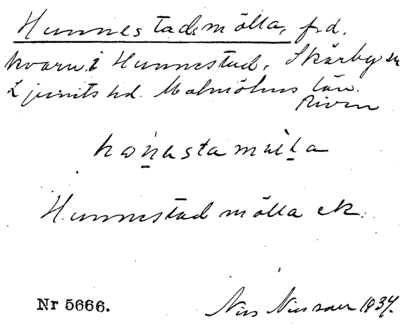 Hunnestadsmölla, frd.
kvarn i Hunnestad, Skårby sn
Ljunits hd. Malmöhus län.
Riven
Hunnestad mölla ek.
Nr 5666.
Nils Nilsson 1934.